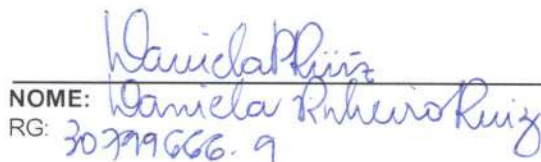 Daniela P Ruiz
NOME: Daniela Pinheiro Ruiz
RG: 30799666-9